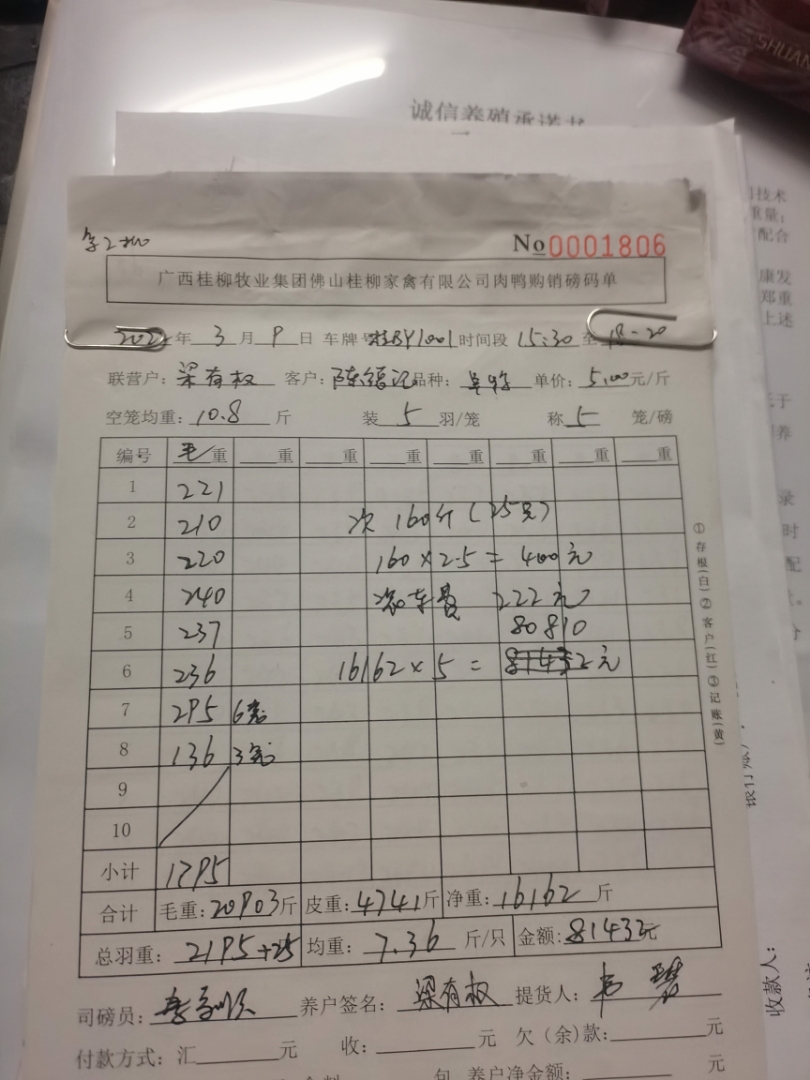 诚信养殖承诺书
No 0001806
广西桂柳牧业集团佛山桂柳家禽有限公司肉鸭购销磅码单
年 3 月 9 日 车牌号 桂BY1001 时间段 15:30 至 18-20
联营户: 梁有权 客户: 品种: 单价: 5.00 元/斤
空笼均重: 10.8 斤 装 5 羽/笼 称 5 笼/磅
编号 毛重 重 重 重 重 重 重 重
1 221
2 210 次 160斤(25只)
3 220 160×2.5=400元
4 240 车费 222元
5 237 80810
6 236 16162×5= 元
7 295 6笼
8 136 3笼
9
10
小计 1795
合计 毛重: 20903斤 皮重: 4741斤 净重: 16162 斤
总羽重: 2195+25 均重: 7.36 斤/只 金额: 81432元
司磅员: 养户签名: 梁有权 提货人:
付款方式: 汇 元 收: 元 欠(余)款: 元
养户净金额: 元
①存根(白)②客户(红)③记账(黄)
收款人:
技术
重量;
配合
康发
郑重
上述